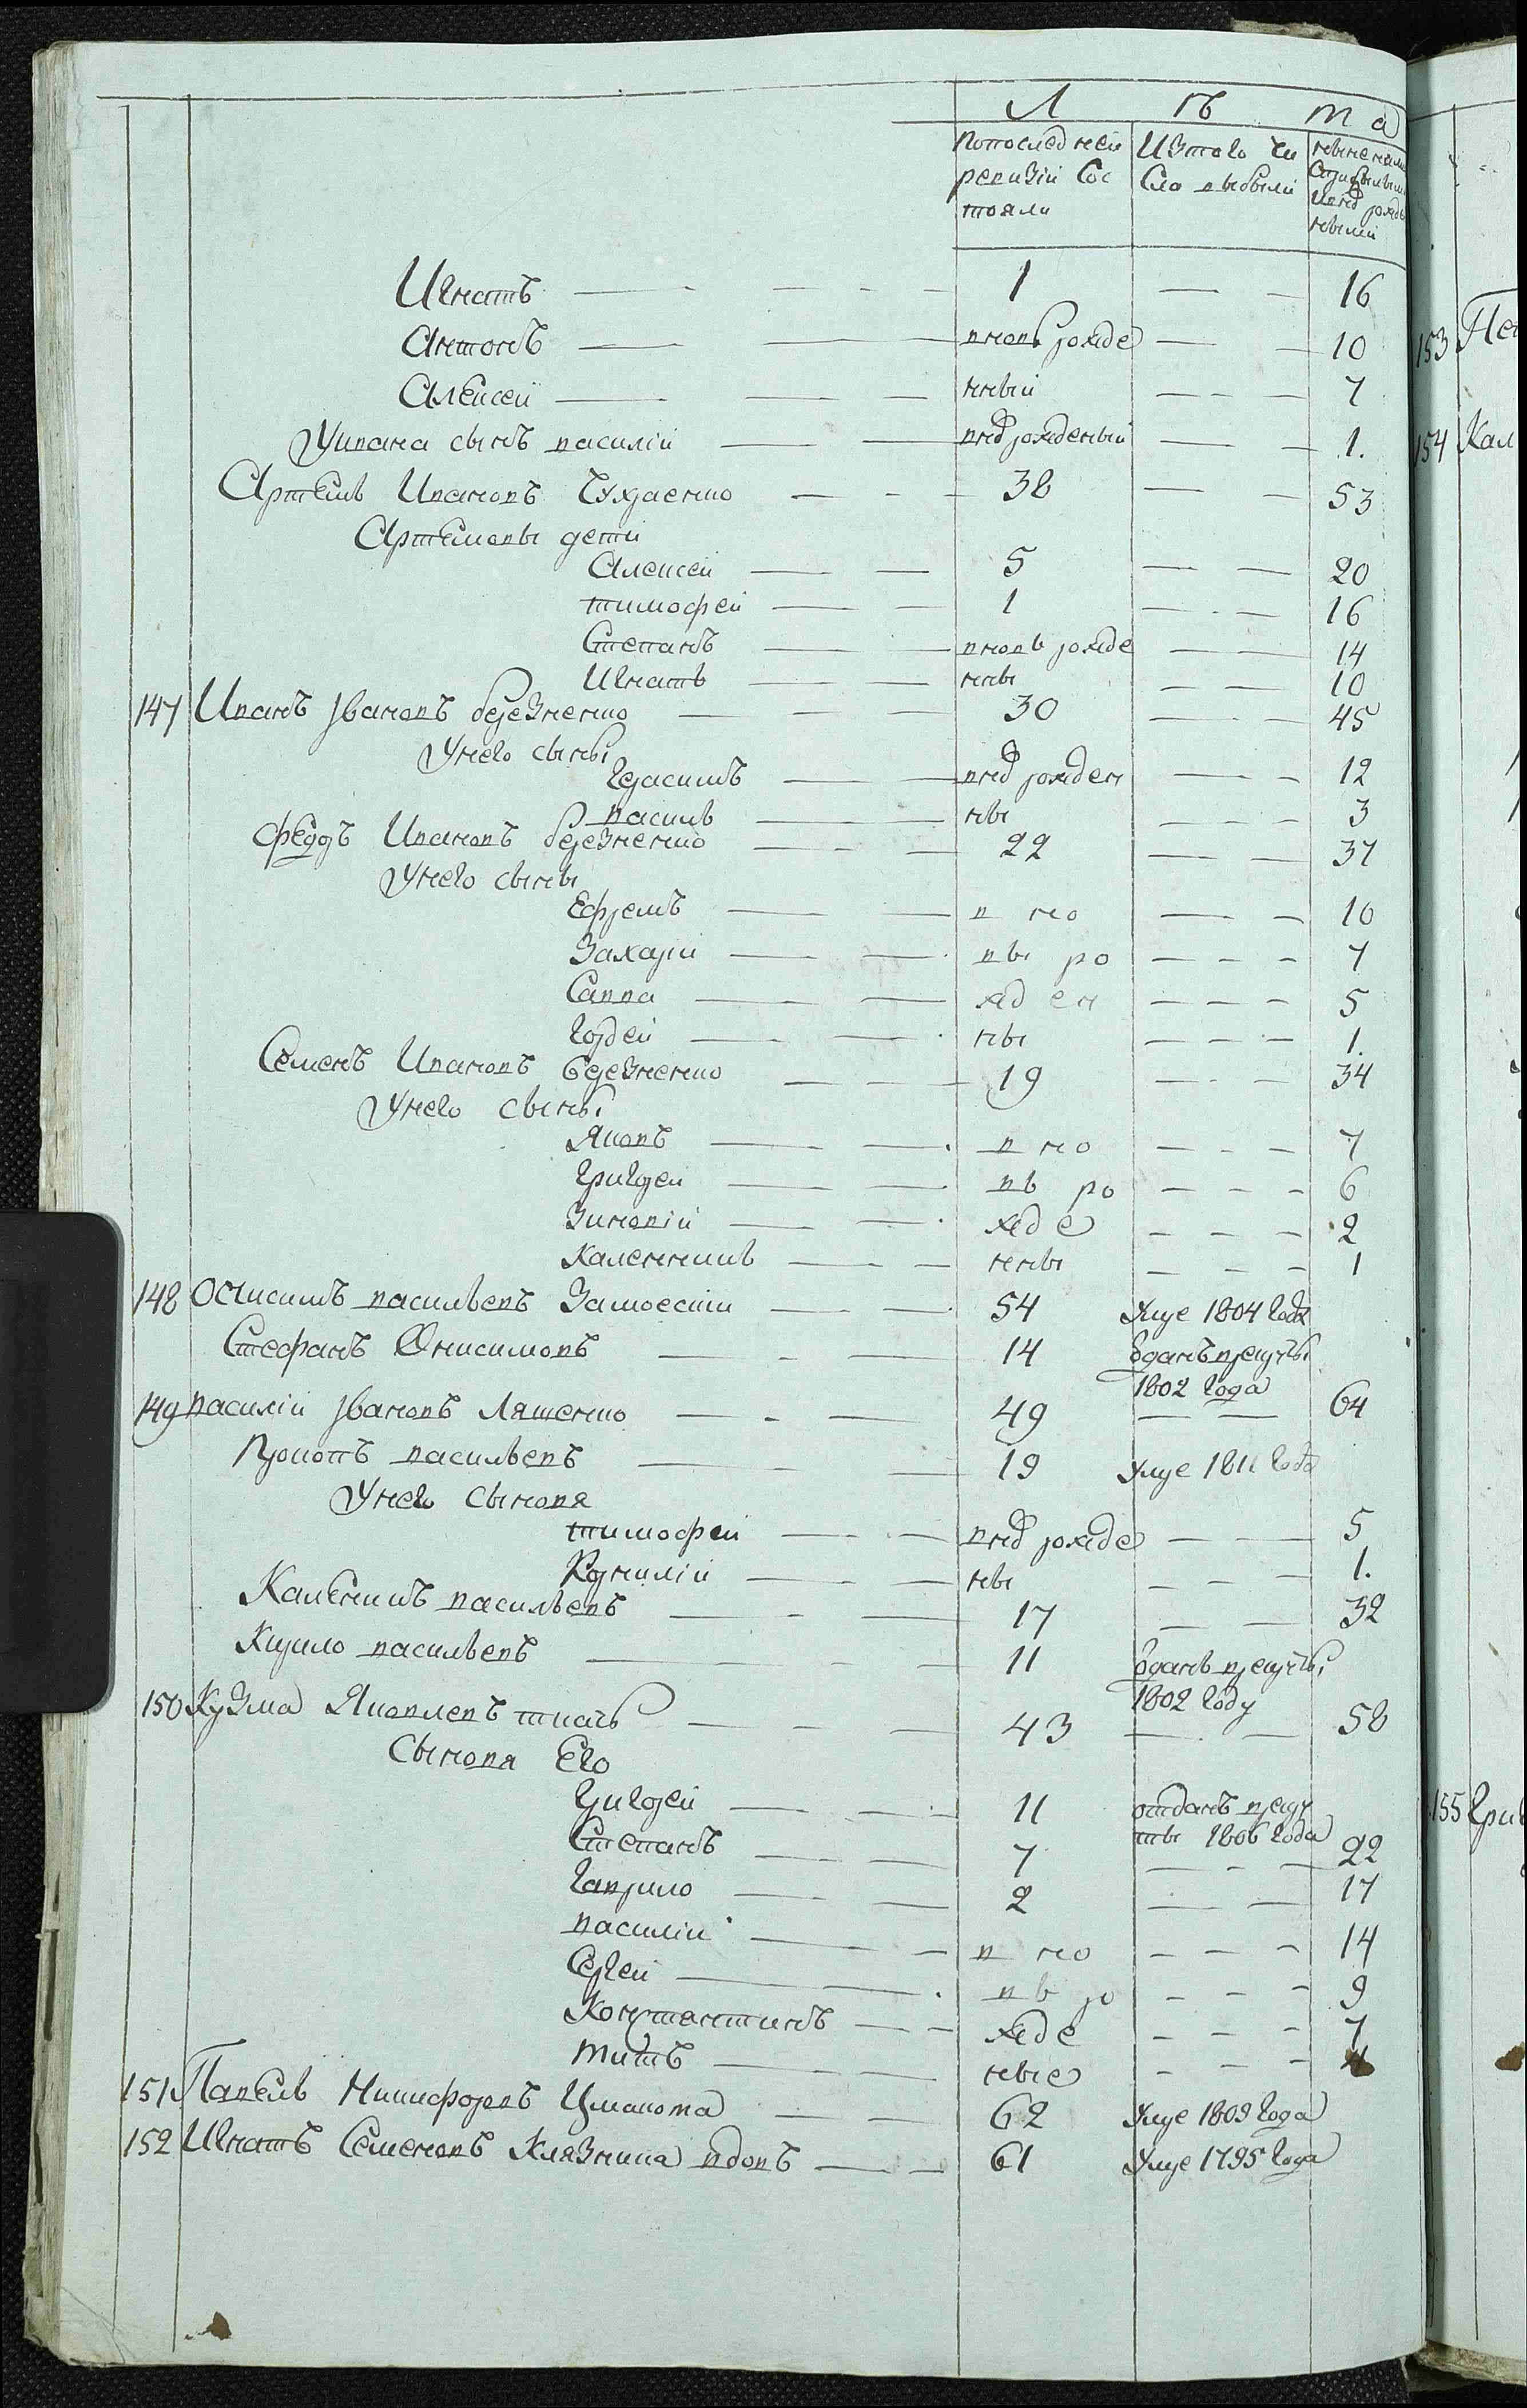 Л ѣ та
Попоследнеи Изтого чи ныне нали
ревизіи сос сла выбыли
тояли
Игнатъ 1 16
Антонъ вновь рожде 10
Алексеи нный 7
Уивана сынъ василіи внов рожденый 1.
Артемъ Ивановъ Чухаенко 38 53
Артемовы дети
Алексеи 5 20
тимофеи 1 16
Степанъ вновь рожде 14
Игнатъ нны 10
147 Иванъ Івановъ березненко 30 45
Унего сыны
Герасимъ внов рожден 12
василь ны 3
федоръ Ивановъ березненко 22 37
Унего сыны
Ефремъ в но 10
Захаріи вы ро 7
Савва жд ен 5
Гордеи ны 1.
Семенъ Ивановъ березненко 19 34
Унего сыны
Яковъ в но 7
Григореи вь ро 6
Зиновіи жд е 2
Каленникъ нны 1
148 Онисимъ васильевъ Замоескии 54 Умре 1804 года
Стефанъ Онисимовъ 14 Oданъ врекруты
1802 года
149 василіи Івановъ Ляшенко 49 64
Прокопъ васильевъ 19 Умре 1811 года
Унего сыновя
тимофеи внов рожде 5
Корниліи ны 1.
Каленикъ васильевъ 17 32
Кирило васильевъ 11 Oданъ врекруты
1802 году
150 Кузма Яковлевъ ткачь 43 58
Сыновя Его
Григореи 11 отданъ врекру
ты 1806 года
Степанъ 7 22
Гаврило 2 17
василіи в но 14
Сергеи в ь ро 9
Констянтинъ жде 7
Титъ ные 4
151 Павелъ Никифоровъ Цмакота 62 Умре 1809 года
152 Игнатъ Семеновъ Клязника вдовъ 61 Умре 1795 года
153
154 Кал
155 Гри